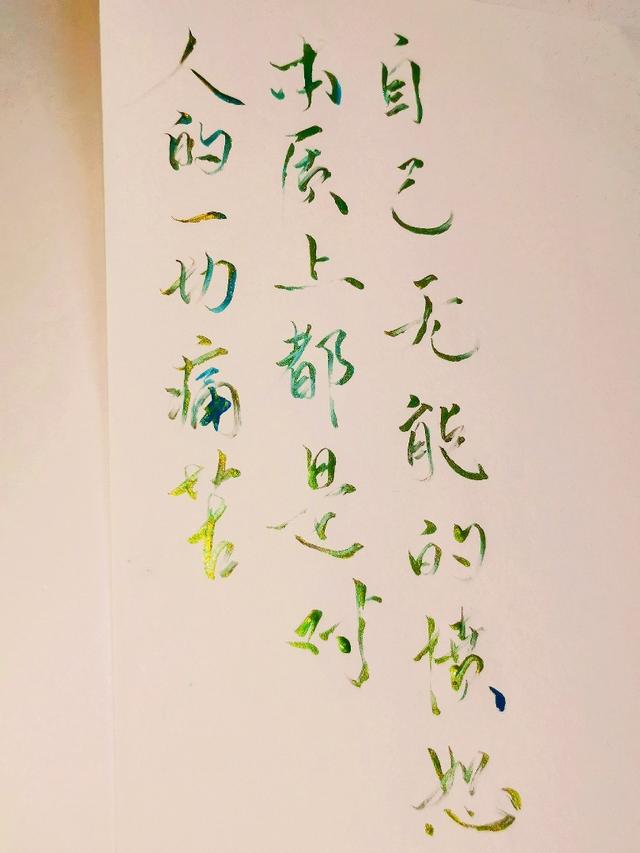 人的一切痛苦
本质上都是对
自己无能的愤怒